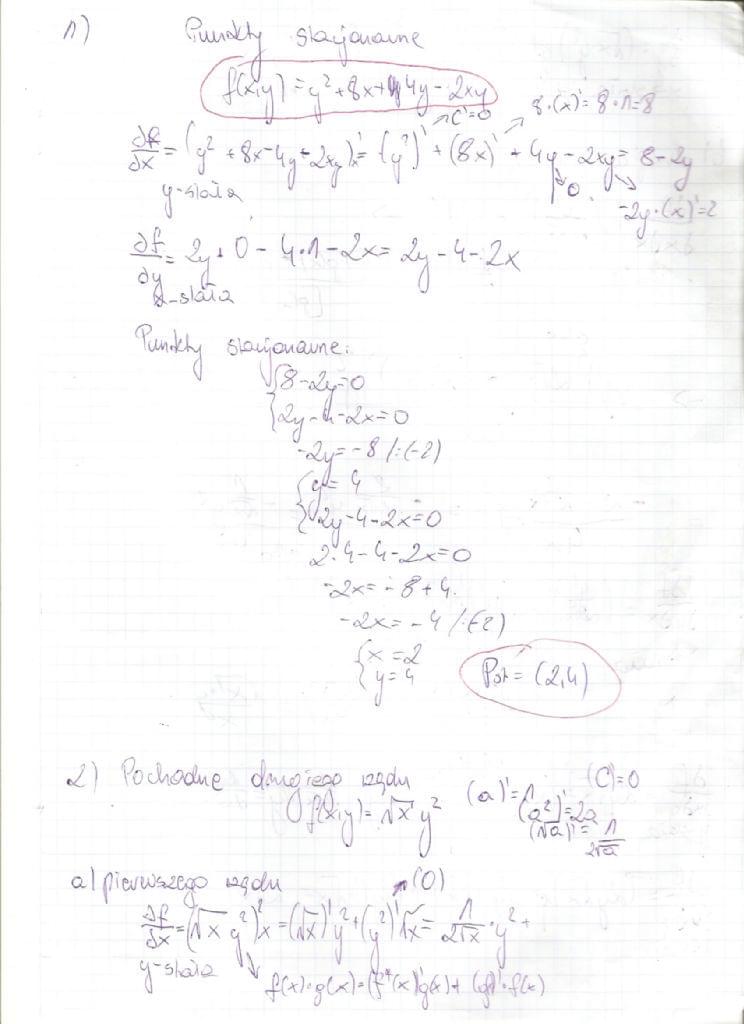 1) Punkty stacjonarne
f(x,y) = y² + 8x + 4y - 2xy
C'=0 8·(x)' = 8·1 = 8
∂f/∂x = (y² + 8x - 4y - 2xy)'x = (y²)' + (8x)' + 4y - 2xy = 8 - 2y
y-stała 0
-2y·(x)' = 2
∂f/∂y = 2y + 0 - 4·1 - 2x = 2y - 4 - 2x
x-stała
Punkty stacjonarne:
{8 - 2y = 0
{2y - 4 - 2x = 0
-2y = -8 /:(-2)
{y = 4
{2y - 4 - 2x = 0
2·4 - 4 - 2x = 0
-2x = -8 + 4
-2x = -4 /:(-2)
{x = 2
{y = 4
= (2,4)
2) Pochodne drugiego rzędu
(a)' = 1 (C)' = 0
f(x,y) = √x y² (a²)' = 2a
(√a)' = 1/2√a
a) pierwszego rzędu (0)
∂f/∂x = (√x y²)'x = (√x)' y² + (y²)' √x = 1/2√x · y² +
y-stała
f(x)·g(x) = (f(x))' g(x) + (g)'·f(x)